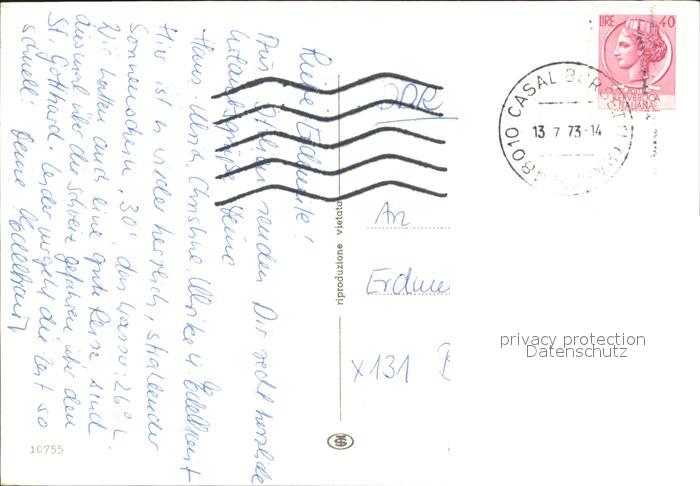 Liebe Erdmute!
Aus Italien senden Dir recht herzliche
Urlaubsgrüße Deine
Hans Ulrich, Christine, Ulrike u. Edeltraut
Hier ist es wieder herrlich, strahlender
Sonnenschein, 30°, das Wasser: 26° C.
Wir hatten auch eine gute Reise sind
diesmal über die Schweiz gefahren über den
St. Gotthard. Leider vergeht die Zeit so
schnell Deine Edeltraut
10755
riproduzione vietata
DDR
An
Erdmu
X 131 B
LIRE 40
REPVBBLICA
ITALIANA
48010 CASAL BORSETTI
13 7 73-14
privacy protection
Datenschutz